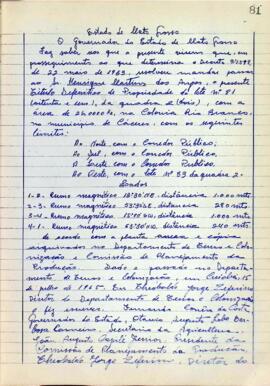 81
Estado de Mato Grosso
O Governador do Estado de Mato Grosso
Faz saber aos que o presente virem que, em
prosseguimento ao que determina o Decreto nº
de 22 maio de 1963, resolveu mandar passar
ao Sr. Henrique Martins dos Anjos, o presente
Título Definitivo de Propriedade do lote nº 81
(oitenta e um), da quadra 2 (dois), com a
área de 26.0000 ha, na Colonia Rio Branco,
no município de Cáceres, com os seguintes
limites:
Ao Norte, com o Corredor Público;
Ao Sul, com o Corredor Público;
A Leste, com o Corredor Público
Ao Oeste, com o lote nº 79 da quadra 2-
Dados
1-2. Rumo magnético distância 1.000 mts
2-3. Rumo magnético distância 280 mts
3-4. Rumo magnético distância 1.000 mts
4-1. Rumo magnético distância 240 mts
de acordo com a planta, cuja cópia
arquivados no Departamento de Terras e Colo-
nização e Comissão de Planejamento da
Produção. Dado e passado no Departa-
mento de Terras e Colonização. Cuiabá, 15
de julho de 1965. Eu Theobaldo Jorge Zeferino
Diretor do Departamento de Terras e Colonização
o fiz escrever. Fernando Corrêa da Costa
Governador do Estado,
Secretaria da Agricultura.
João Augusto Presidente da
Comissão de Planejamento da Produção,
Theobaldo Jorge Zeferino, Diretor do